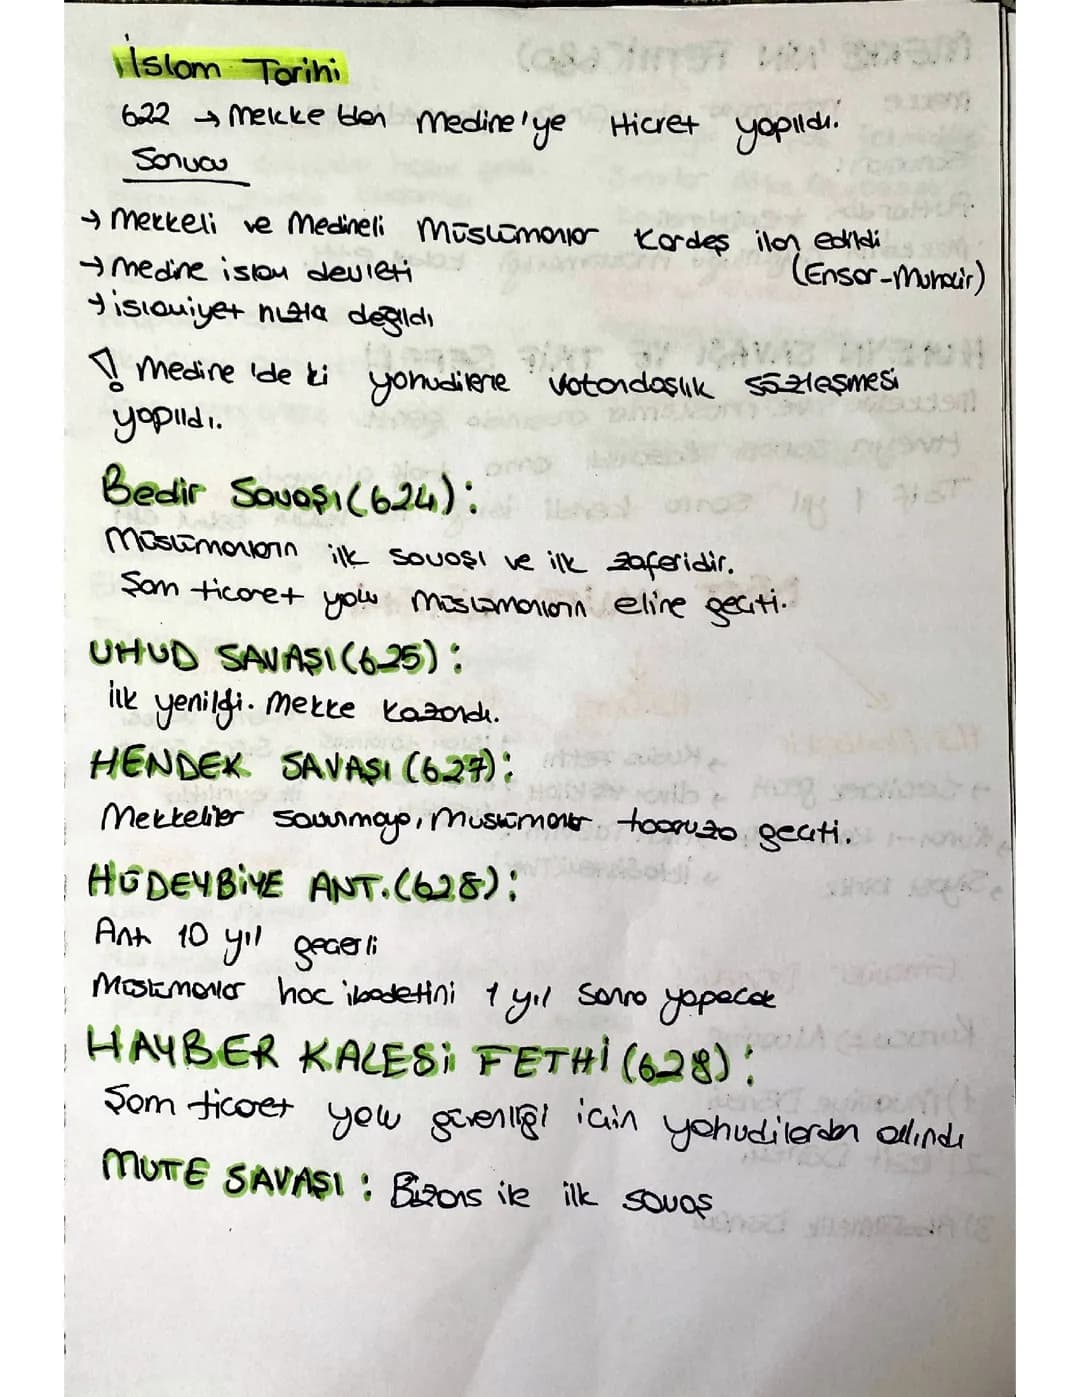 İslam Tarihi
622 → Mekke'den Medine'ye Hicret yapıldı.
Sonucu
→ Mekkeli ve Medineli Müslümanlar kardeş ilan edildi
(Ensar-Muhacir)
→ Medine islam devleti
→ islamiyet hızla değildı
! Medine'de ki yahudilerle vatandaşlık sözleşmesi
yapıldı.
Bedir Savaşı (624):
Müslümanların ilk savaşı ve ilk zaferidir.
Şam ticaret yolu müslümanların eline geçti.
UHUD SAVAŞI (625):
ilk yenilgi. Mekke kazandı.
HENDEK SAVAŞI (627):
Mekkeliler savunmaya, Müslümanlar taaruza geçti.
HÜDEYBİYE ANT. (628):
Ant 10 yıl geçerli
Müslümanlar hac ibadetini 1 yıl sonra yapacak
HAYBER KALESİ FETHİ (628):
Şam ticaret yolu güvenliği için yahudilerden alındı
MUTE SAVAŞI : Bizans ile ilk savaş